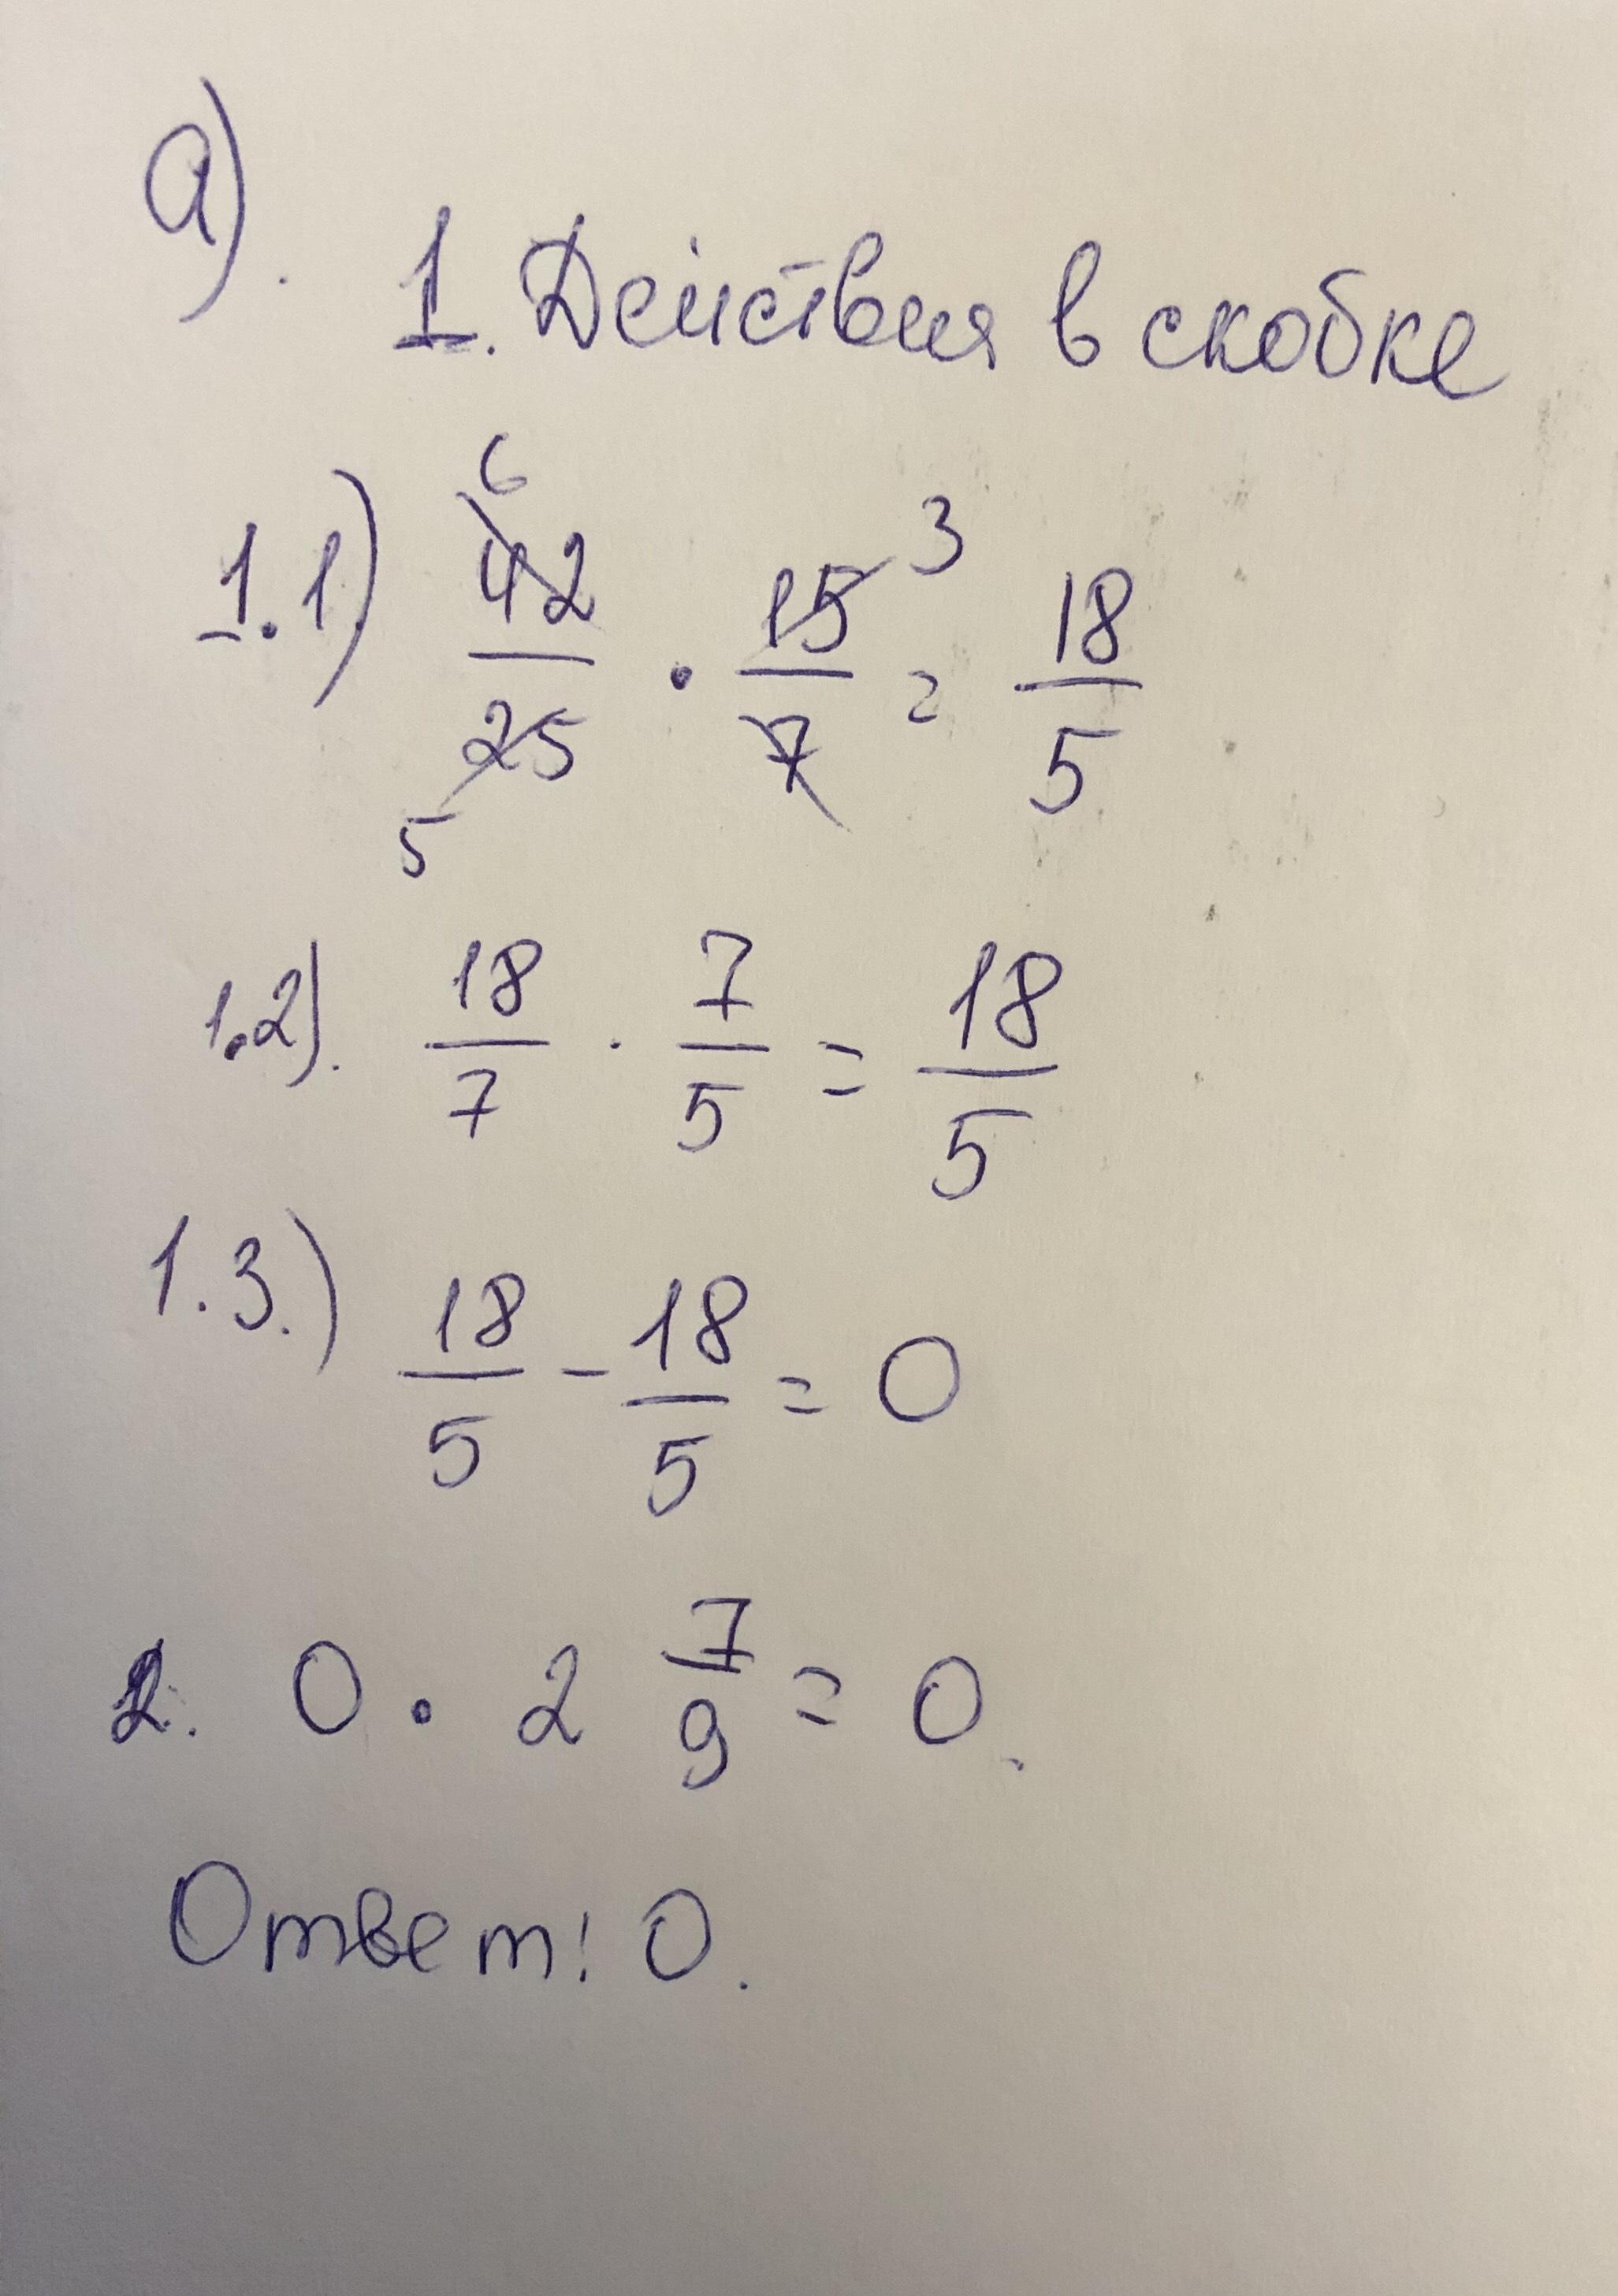 а).
1. Действия в скобке
1.1) 42/25 · 15/7 = 18/5
6 3
5
1.2). 18/7 · 7/5 = 18/5
1.3.) 18/5 - 18/5 = 0
2. 0 · 2 7/9 = 0.
Ответ: 0.